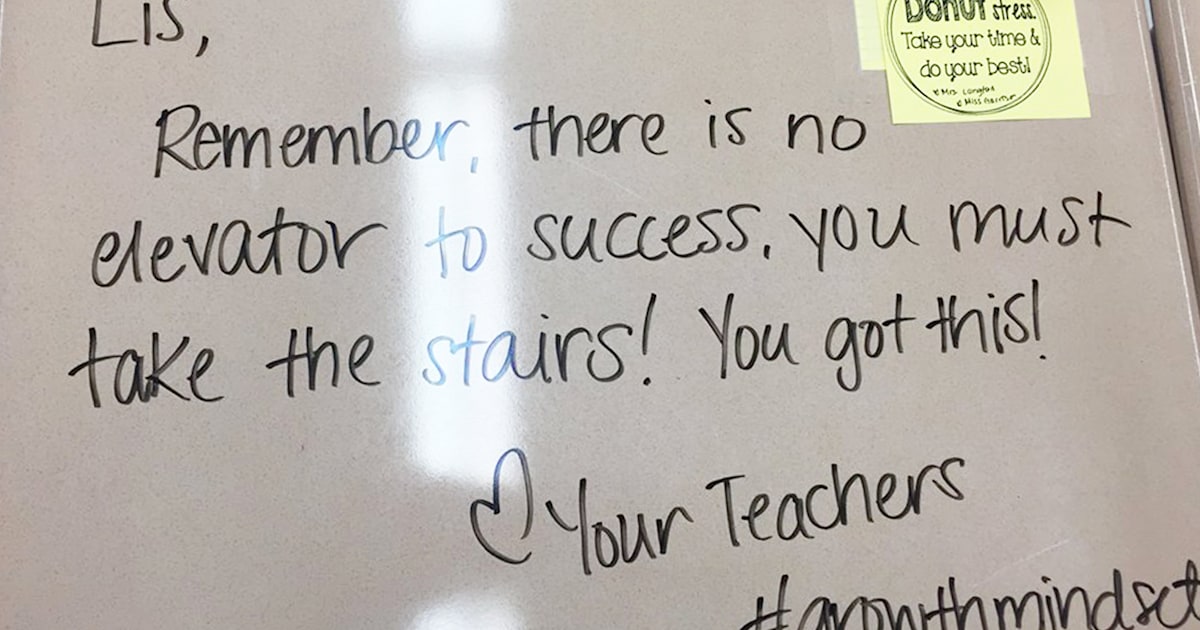 Lis,
DONUT stress.
Take your time &
do your best!
Remember, there is no
elevator to success, you must
take the stairs! You got this!
♡ Your Teachers
#growthmindset